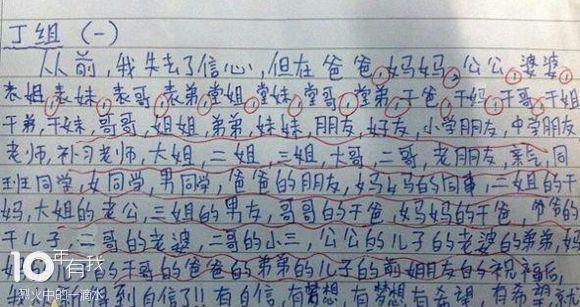 丁组 (一)
从前，我失去了信心，但在爸爸，妈妈，公公，婆婆，
表姐，表妹，表哥，表弟，堂姐，堂妹，堂哥，堂弟，干爸，干妈，干哥，干姐
干弟，干妹，哥哥，姐姐，弟弟，妹妹，朋友，好友，小学朋友，中学朋友
老师，补习老师，大姐，二姐，三姐，大哥，二哥，老朋友，亲戚，同
班同学，女同学，男同学，爸爸的朋友，妈妈的同事，二姐的干
妈，大姐的老公，三姐的男友，哥哥的干爸，妈妈的干爸，爷爷的
干儿子，二哥的老婆，二哥的小三，公公的儿子的老婆的弟弟，妈
的干哥的爸爸的弟弟的儿子的前姐朋友的祝福后，
到自信了!! 有自信，有梦想 有梦想 有希望 有希望
10年有我
烈火中的一滴水